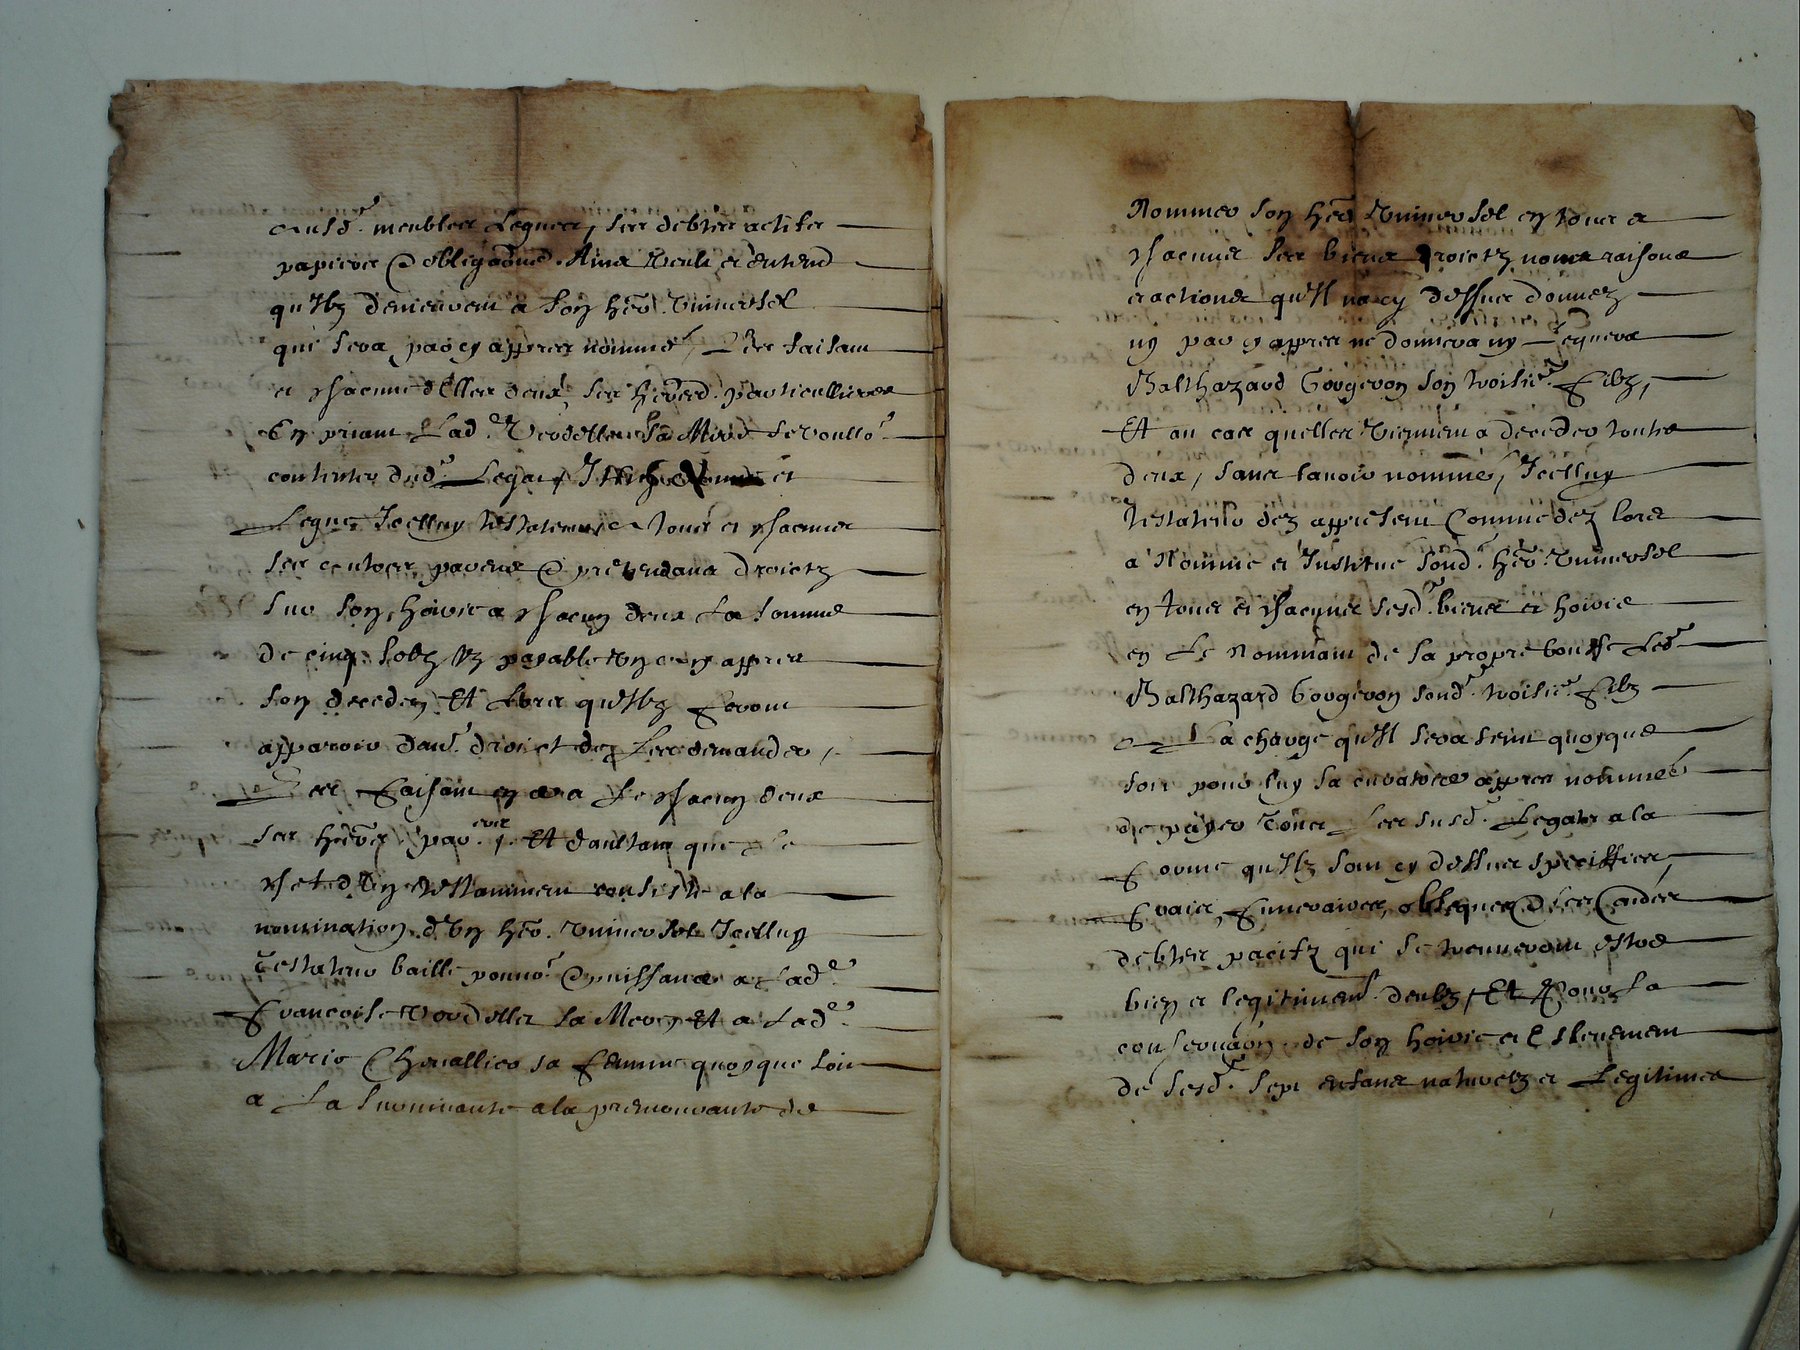 ausd.^t meubles legues, ses debtes actifes
papiers & obliga~ons. Ains veult et entend
qu'Ilz demeurent a son her. Universel
qui sera par cy appres nommé, Les faisant
et chacune d'Elles deux, ses hered. particullieres
En priant Lad.^e Verdellet sa Mere se voullo.^r
contenter dud.^t Legat, Item donne et
Legue Icelluy testateur a tous et chacuns
ses autres parens & pretendans droictz
sur son hoirie a chacun deux La somme
de cinq solz tz payable ung an appres
son decedz Et Lors qu'Ilz feront
apparoir d'au.^t droict de Les demander,
Les faisant en ce a Le chacun deux
ses hers par.^ers Et daultant que Le
chef d'Un testamment consiste a la
nomination d'Un her. universel Icelluy
Testateur baille pouvo.^r & puissance a Lad.^e
Francoise Verdellet sa Mere Et a Lad.^e
Marie Chevallier sa femme quoyque soit
a La survivante a la premourante de
Nommer son her. Universel en tous et
chacuns ses biens droictz noms raisons
et actions qu'Il na cy dessus donnez
ny par cy appres ne donnera ny Leguera
Balthazard Gougeron son troisie.^e filz,
Et au cas quelles viennent a deceder toutes
deux, sans lavoir nommé, Icelluy
testateur dez appresent Comme dez lors
a Nommé et Institue sond.^t her. Universel
en tous et chacuns sesd.^ts biens et hoirie
en Le nommant de sa propre bouche Led.^t
Balthazard Gougeron sond.^t troisie.^e filz
A La charge qu'Il sera tenu quoyque
soit pour luy sa curatrice appres nommée
de payer tous Les susd.^ts Legats a la
forme qu'Ilz sont cy dessus speciffies,
fraicz, funeraires, obseques & les Audes
debtes pacifz qui se treuveront estre
bien et legitimem.^t deubz, Et Pour La
conserva~on de son hoirie et Eslevement
de sesd.^ts sept enfans naturelz et Legitimes